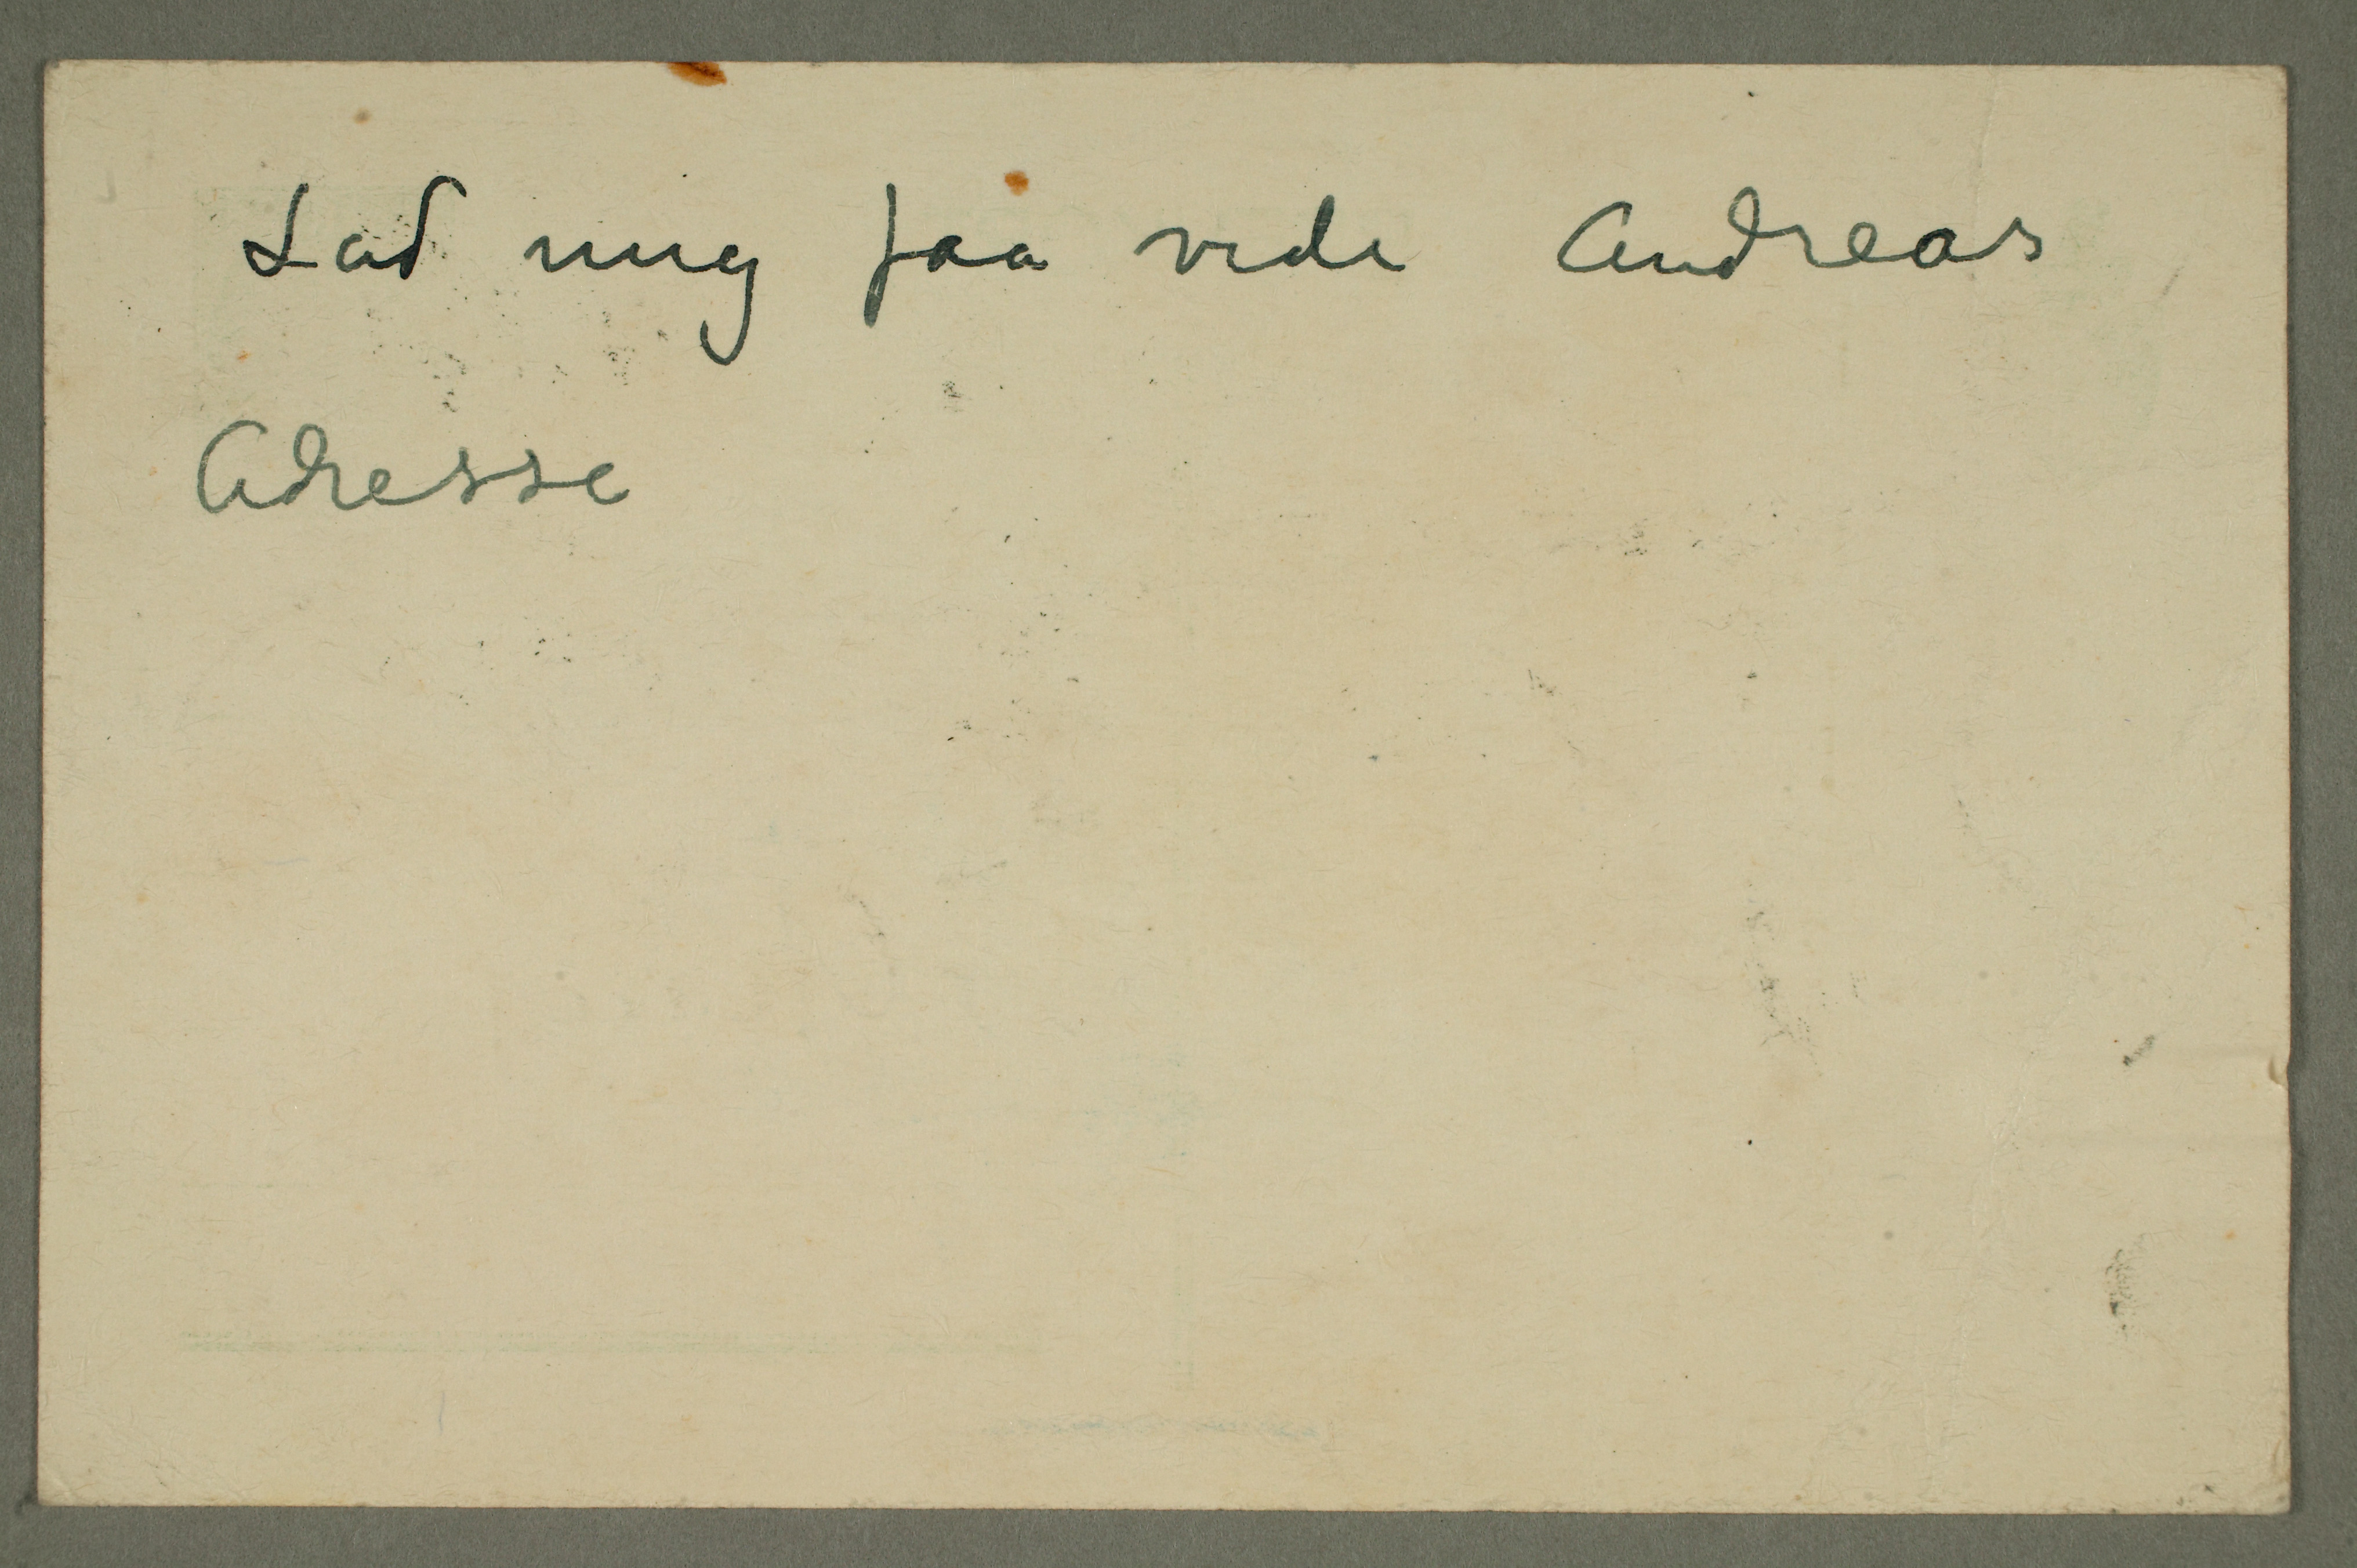 Lad mig faa vide Andreas
Adresse